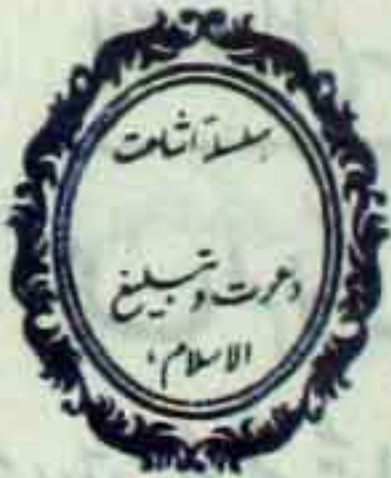 سلسلۂ اشاعت
دعوت و تبلیغ
الاسلام،